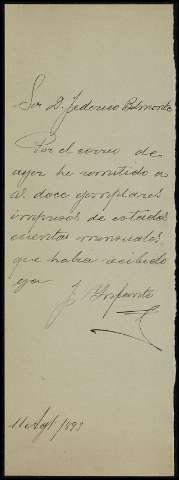 Sor D. Federico Belmonte
Por el correo de
ayer he remitido a
V. doce ejemplares
impresos de estados
cuentas mensuales,
que habra recibido
ya
J. Ynfante
11 Agt/893